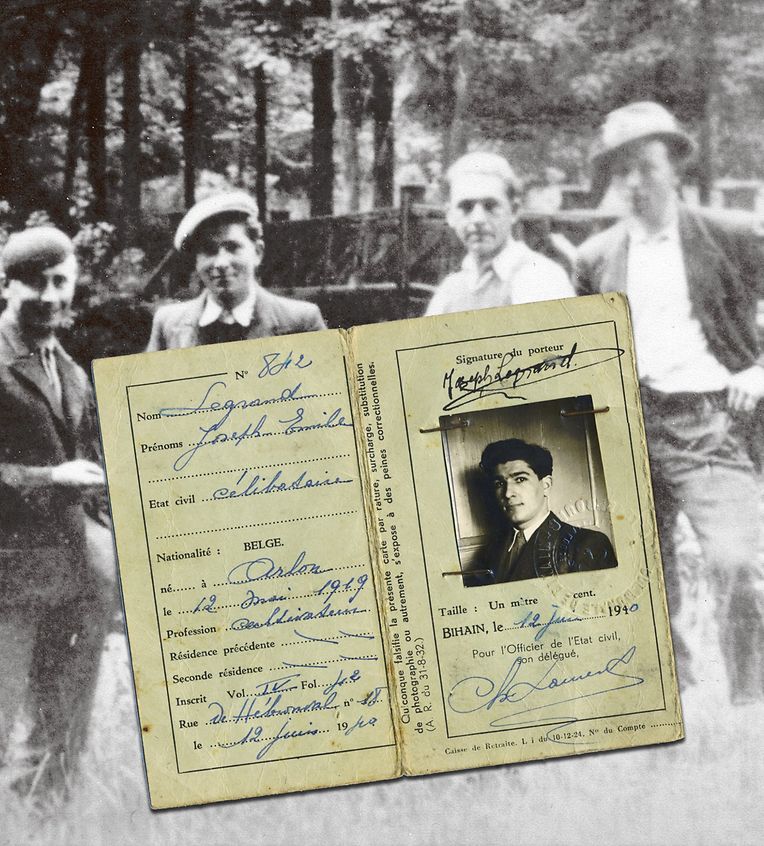 N° 842
Nom Legrand
Prénoms Joseph Emile
Etat civil célibataire
Nationalité : BELGE.
né à Arlon
le 12 mai 1919
Profession cultivateur
Résidence précédente
Seconde résidence
Inscrit Vol. IV Fol. 42
Rue de Hébronval n° 18
le 12 juin 1940
Quiconque falsifie la présente carte par rature, surcharge, substitution
de photographie ou autrement, s'expose à des peines correctionnelles.
(A. R. du 31-8-32.)
Signature du porteur
Joseph Legrand.
Taille : Un mètre cent.
BIHAIN, le 12 juin 1940
Pour l'Officier de l'Etat civil,
son délégué,
Caisse de Retraite. L i du 10-12-24, N° du Compte